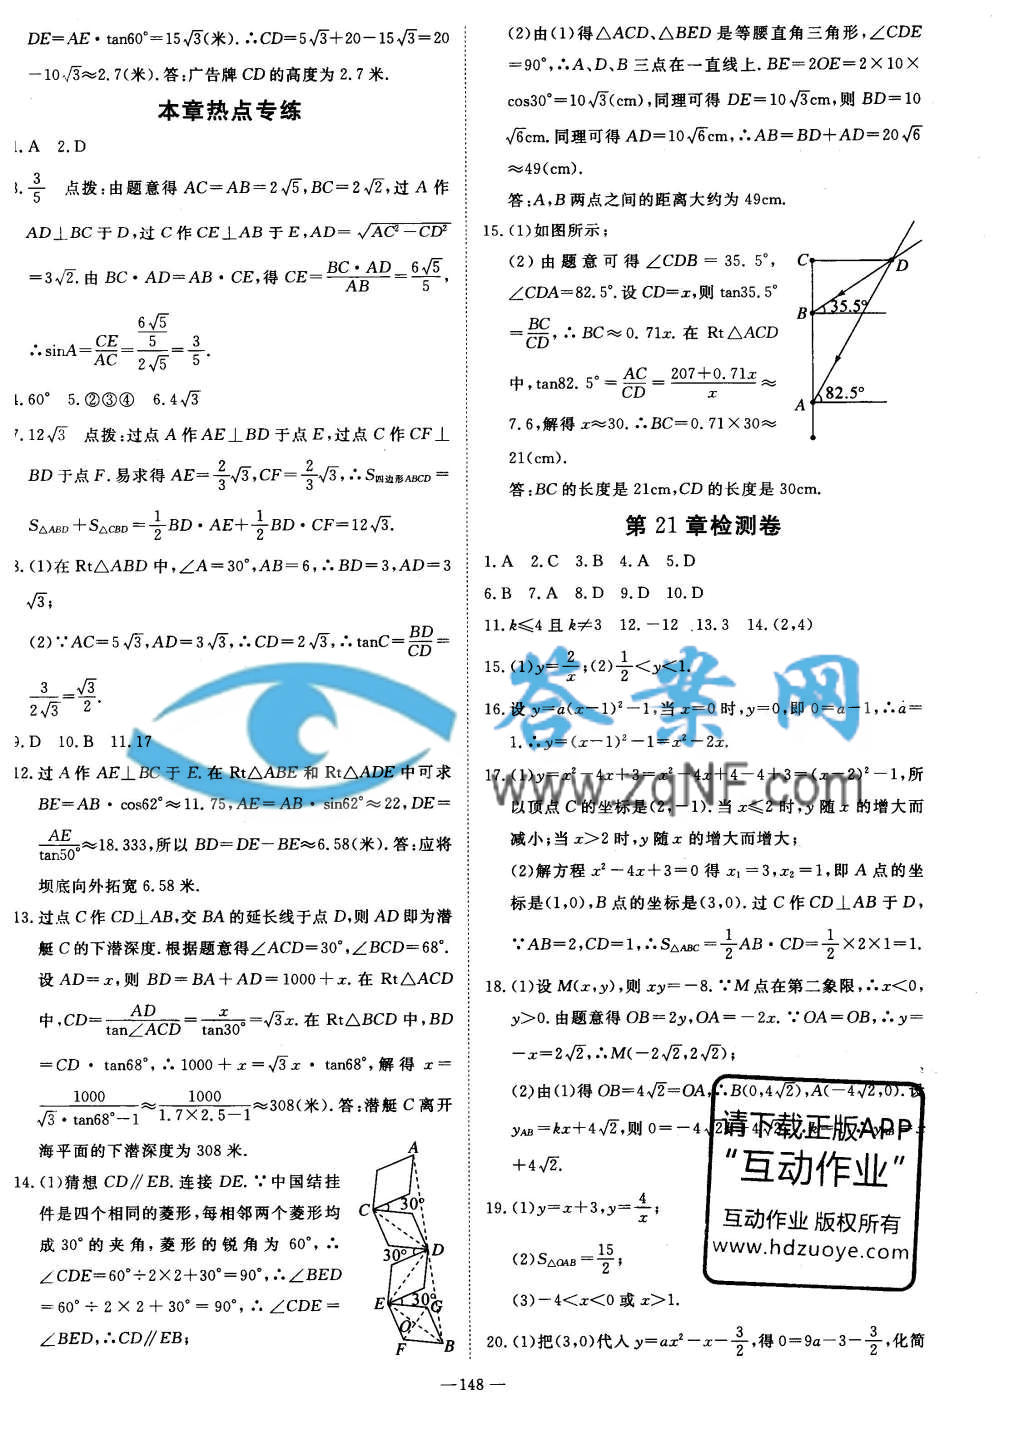 DE=AE·tan60°=15√3(米).∴CD=5√3+20-15√3=20
-10√3≈2.7(米).答:广告牌 CD 的高度为 2.7 米.
本章热点专练
1.A 2.D
3.3/5 点拨:由题意得 AC=AB=2√5,BC=2√2,过 A 作
AD⊥BC 于 D,过 C 作 CE⊥AB 于 E,AD=√(AC²-CD²)
=3√2.由 BC·AD=AB·CE,得 CE=(BC·AD)/AB=6√5/5,
∴sinA=CE/AC=(6√5/5)/(2√5)=3/5.
4.60° 5.②③④ 6.4√3
7.12√3 点拨:过点 A 作 AE⊥BD 于点 E,过点 C 作 CF⊥
BD 于点 F.易求得 AE=2/3√3,CF=2/3√3,∴S四边形ABCD=
S△ABD+S△CBD=1/2BD·AE+1/2BD·CF=12√3.
8.(1)在 Rt△ABD 中,∠A=30°,AB=6,∴BD=3,AD=3
√3;
(2)∵AC=5√3,AD=3√3,∴CD=2√3,∴tanC=BD/CD=
3/(2√3)=√3/2.
9.D 10.B 11.17
12.过 A 作 AE⊥BC 于 E.在 Rt△ABE 和 Rt△ADE 中可求
BE=AB·cos62°≈11.75,AE=AB·sin62°≈22,DE=
AE/tan50°≈18.333,所以 BD=DE-BE≈6.58(米).答:应将
坝底向外拓宽 6.58 米.
13.过点 C 作 CD⊥AB,交 BA 的延长线于点 D,则 AD 即为潜
艇 C 的下潜深度.根据题意得∠ACD=30°,∠BCD=68°.
设 AD=x,则 BD=BA+AD=1000+x.在 Rt△ACD
中,CD=AD/tan∠ACD=x/tan30°=√3x.在 Rt△BCD 中,BD
=CD·tan68°,∴1000+x=√3x·tan68°,解得 x=
1000/(√3·tan68°-1)≈1000/(1.7×2.5-1)≈308(米).答:潜艇 C 离开
海平面的下潜深度为 308 米.
14.(1)猜想 CD∥EB.连接 DE.∵中国结挂
件是四个相同的菱形,每相邻两个菱形均
成 30°的夹角,菱形的锐角为 60°,∴
∠CDE=60°÷2×2+30°=90°,∴∠BED
=60°÷2×2+30°=90°,∴∠CDE=
∠BED,∴CD∥EB;
A
C
30°
30°
D
E
30°
G
O
F
B
(2)由(1)得△ACD、△BED 是等腰直角三角形,∠CDE
=90°,∴A、D、B 三点在一直线上.BE=2OE=2×10×
cos30°=10√3(cm),同理可得 DE=10√3cm,则 BD=10
√6cm.同理可得 AD=10√6cm,∴AB=BD+AD=20√6
≈49(cm).
答:A,B 两点之间的距离大约为 49cm.
15.(1)如图所示;
(2)由题意可得∠CDB=35.5°,
∠CDA=82.5°.设 CD=x,则 tan35.5°
=BC/CD,∴BC≈0.71x.在 Rt△ACD
中,tan82.5°=AC/CD=(207+0.71x)/x≈
7.6,解得 x≈30.∴BC=0.71×30≈
21(cm).
答:BC 的长度是 21cm,CD 的长度是 30cm.
C
D
B
35.5°
A
82.5°
第 21 章检测卷
1.A 2.C 3.B 4.A 5.D
6.B 7.A 8.D 9.D 10.D
11.k≤4 且 k≠3 12.-12 13.3 14.(2,4)
15.(1)y=2/x;(2)1/2<y<1.
16.设 y=a(x-1)²-1,当 x=0 时,y=0,即 0=a-1,∴a=
1.∴y=(x-1)²-1=x²-2x.
17.(1)y=x²-4x+3=x²-4x+4-4+3=(x-2)²-1,所
以顶点 C 的坐标是(2,-1).当 x≤2 时,y 随 x 的增大而
减小;当 x>2 时,y 随 x 的增大而增大;
(2)解方程 x²-4x+3=0 得 x₁=3,x₂=1,即 A 点的坐
标是(1,0),B 点的坐标是(3,0).过 C 作 CD⊥AB 于 D,
∵AB=2,CD=1,∴S△ABC=1/2AB·CD=1/2×2×1=1.
18.(1)设 M(x,y),则 xy=-8.∵M 点在第二象限,∴x<0,
y>0.由题意得 OB=2y,OA=-2x.∵OA=OB,∴y=
-x=2√2,∴M(-2√2,2√2);
(2)由(1)得 OB=4√2=OA,∴B(0,4√2),A(-4√2,0).设
yAB=kx+4√2,则 0=-4
+4√2.
19.(1)y=x+3,y=4/x;
(2)S△OAB=15/2;
(3)-4<x<0 或 x>1.
20.(1)把(3,0)代人 y=ax²-x-3/2,得 0=9a-3-3/2,化简
请下载正版APP
“互动作业”
互动作业 版权所有
www.hdzuoye.com
答案网
www.zqNF.com
—148—